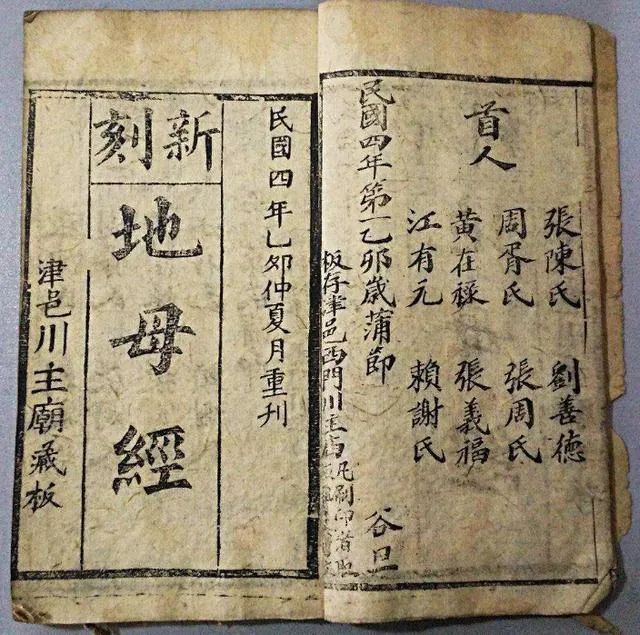 首人
張陳氏 劉善德
周胥氏 張周氏
黃在祿 張義福
江有元 賴謝氏
民國四年第一乙卯歲蒲節 谷旦
板存津邑西門川主庙凡刷印者
民國四年乙卯仲夏月重刊
新刻
地母經
津邑川主廟藏板